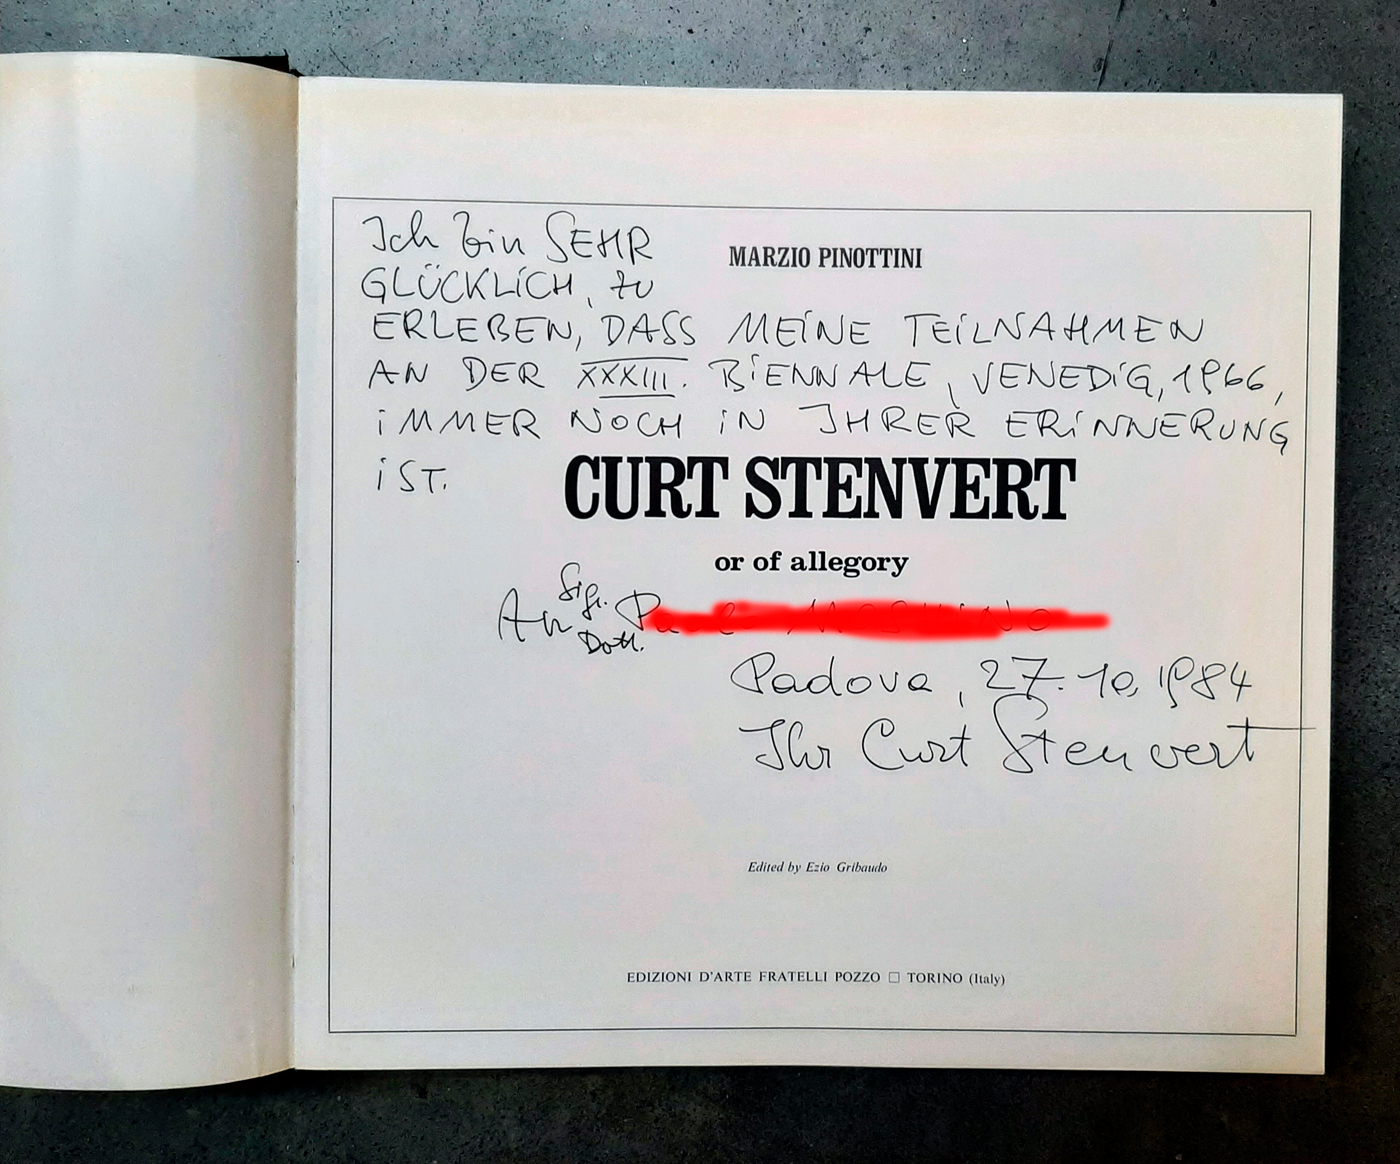 Ich bin SEHR
GLÜCKLICH, ZU
MARZIO PINOTTINI
ERLEBEN, DASS MEINE TEILNAHMEN
AN DER XXXIII. BIENNALE, VENEDIG, 1966,
IMMER NOCH IN IHRER ERINNERUNG
IST.
CURT STENVERT
or of allegory
An Sigr. Dott.
Padova, 27.10.1984
Ihr Curt Stenvert
Edited by Ezio Gribaudo
EDIZIONI D'ARTE FRATELLI POZZO □ TORINO (Italy)